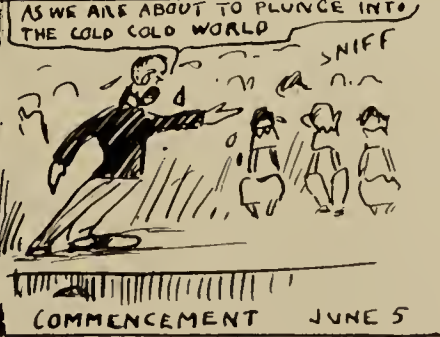 AS WE ARE ABOUT TO PLUNGE INTO
THE COLD COLD WORLD
SNIFF
COMMENCEMENT JUNE 5